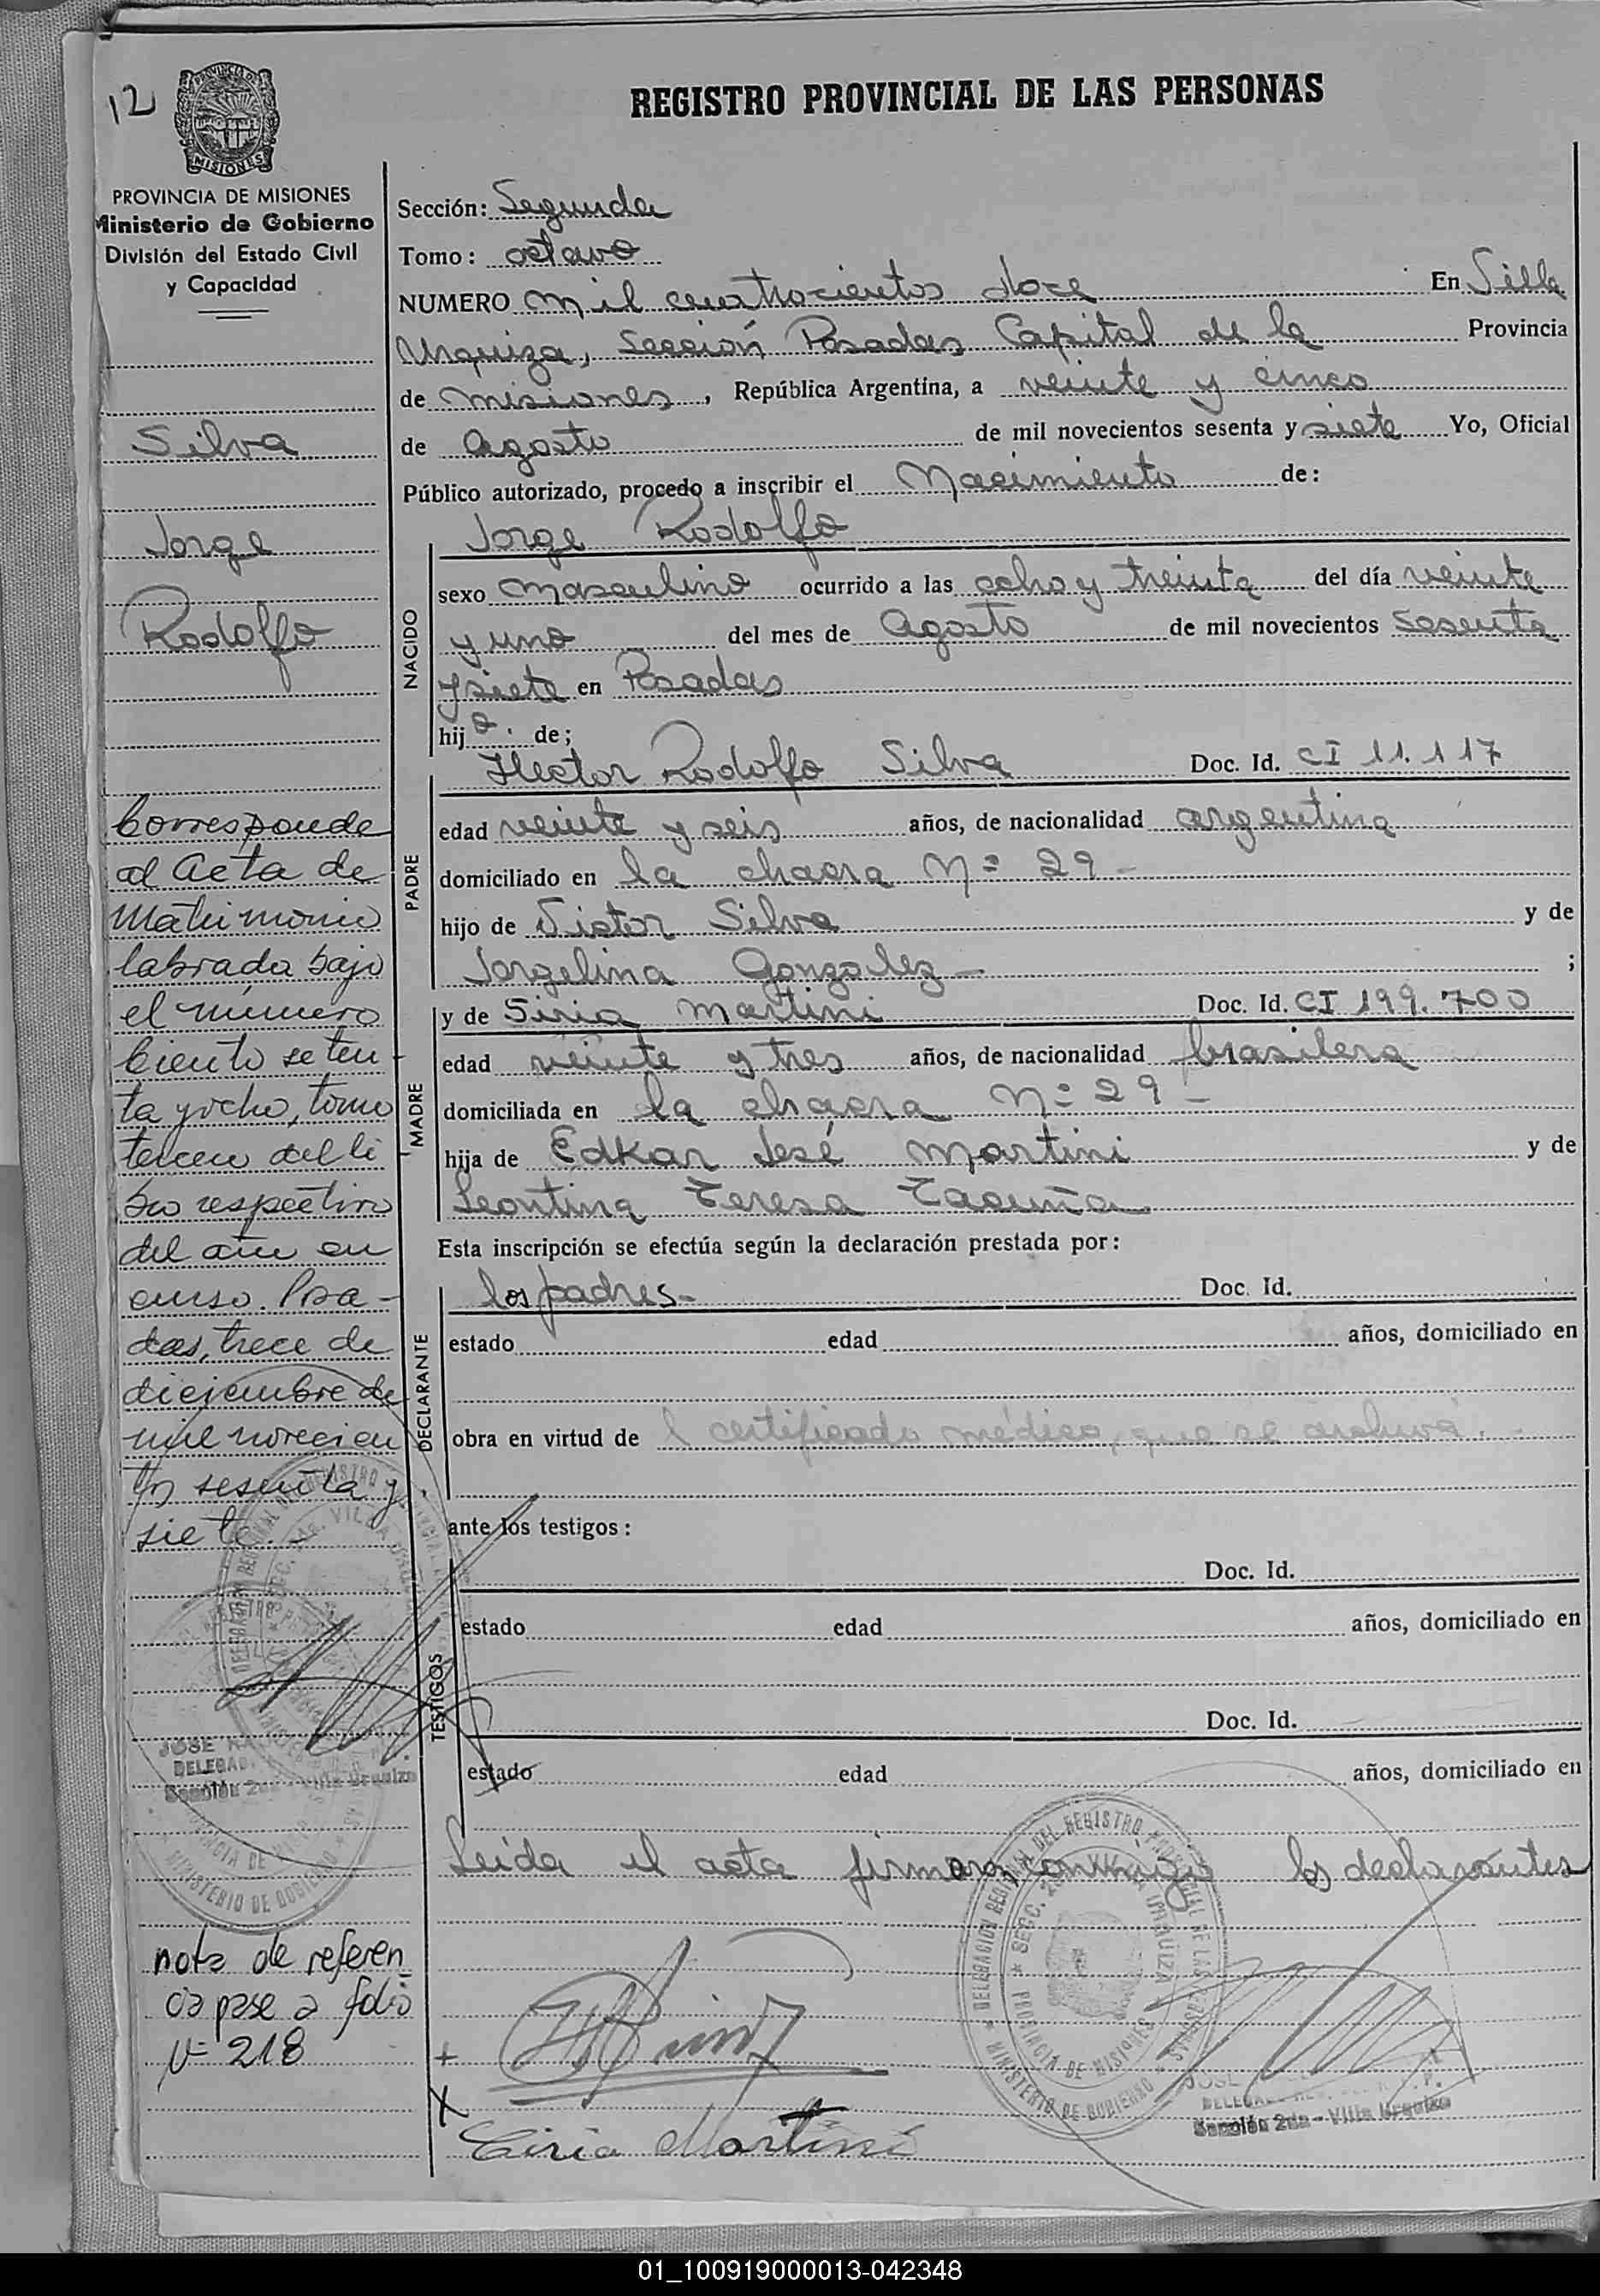 12
PROVINCIA DE MISIONES
PROVINCIA DE MISIONES
Ministerio de Gobierno
División del Estado Civil
y Capacidad
REGISTRO PROVINCIAL DE LAS PERSONAS
Sección: Segunda
Tomo: octavo
NUMERO mil cuatrocientos doce En Villa
Urquiza, Sección Posadas Capital de la Provincia
de misiones, República Argentina, a veinte y cinco
de Agosto de mil novecientos sesenta y siete Yo, Oficial
Público autorizado, procedo a inscribir el Nacimiento de:
Silva
Jorge
Rodolfo
NACIDO
Jorge Rodolfo
sexo masculino ocurrido a las ocho y treinta del día veinte
y uno del mes de Agosto de mil novecientos sesenta
y siete en Posadas
hijo. de;
PADRE
Hector Rodolfo Silva Doc. Id. CI 11.117
edad veinte y seis años, de nacionalidad argentina
domiciliado en la chacra Nº 29-
hijo de Victor Silva y de
Jorgelina Gonzalez- ;
MADRE
y de Siria Martini Doc. Id. CI 199.700
edad veinte y tres años, de nacionalidad brasilera
domiciliada en la chacra Nº 29-
hija de Edkar José Martini y de
Leontina Teresa
Esta inscripción se efectúa según la declaración prestada por:
DECLARANTE
los padres- Doc. Id.
estado edad años, domiciliado en
obra en virtud de l certificado médico, que se archiva.-
ante los testigos:
TESTIGOS
Doc. Id.
estado edad años, domiciliado en
Doc. Id.
estado edad años, domiciliado en
Leida el acta firman conmigo los declarantes
Corresponde
al Acta de
Matrimonio
labrada bajo
el número
Ciento seten-
ta y ocho, tomo
tercero del li
bro respectivo
del año en
curso. Posa-
das, trece de
diciembre de
mil novecien
tos sesenta y
siete.-
JOSE
DELEGAD
Sección 2da - Villa Urquiza
MINISTERIO DE GOBIERNO
nota de referen
cia pase a folio
Nº 218
+
X
Ciria Martini
DELEGACION REGIONAL DEL REGISTRO PROVINCIAL DE LAS PERSONAS
SECC. 2da VILLA URQUIZA
PROVINCIA DE MISIONES
MINISTERIO DE GOBIERNO
JOSE
Sección 2da - Villa Urquiza
01_100919000013-042348